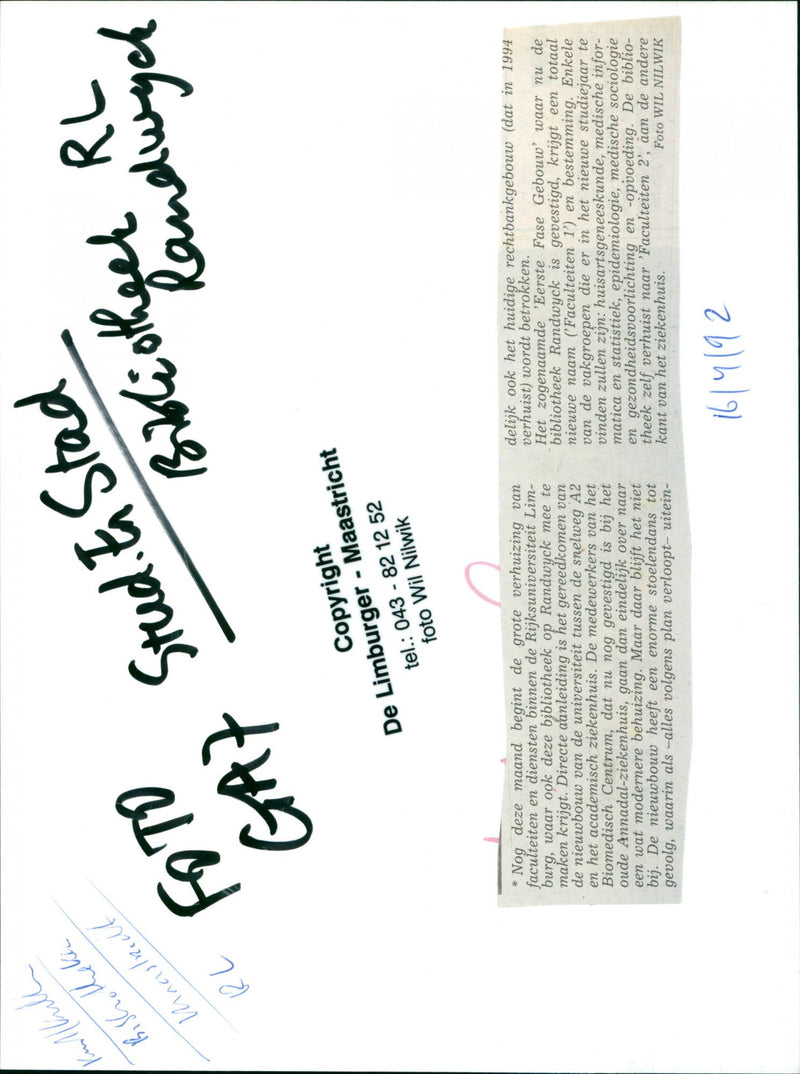 FOTO Stud. In Stad
Bibliotheek RL
GAZ
Bibliotheek
Randwyck
Universiteit
RL
Copyright
De Limburger - Maastricht
tel.: 043 - 82 12 52
foto Wil Nilwik
* Nog deze maand begint de grote verhuizing van
faculteiten en diensten binnen de Rijksuniversiteit Lim-
burg, waar ook deze bibliotheek op Randwyck mee te
maken krijgt. Directe aanleiding is het gereedkomen van
de nieuwbouw van de universiteit tussen de snelweg A2
en het academisch ziekenhuis. De medewerkers van het
Biomedisch Centrum, dat nu nog gevestigd is bij het
oude Annadal-ziekenhuis, gaan dan eindelijk over naar
een wat modernere behuizing. Maar daar blijft het niet
bij. De nieuwbouw heeft een enorme stoelendans tot
gevolg, waarin als –alles volgens plan verloopt– uitein-
delijk ook het huidige rechtbankgebouw (dat in 1994
verhuist) wordt betrokken.
Het zogenaamde 'Eerste Fase Gebouw' waar nu de
bibliotheek Randwyck is gevestigd, krijgt een totaal
nieuwe naam ('Faculteiten 1') en bestemming. Enkele
van de vakgroepen die er in het nieuwe studiejaar te
vinden zullen zijn: huisartsgeneeskunde, medische infor-
matica en statistiek, epidemiologie, medische sociologie
en gezondheidsvoorlichting en -opvoeding. De biblio-
theek zelf verhuist naar 'Faculteiten 2', aan de andere
kant van het ziekenhuis.
Foto WIL NILWIK
16/4/92